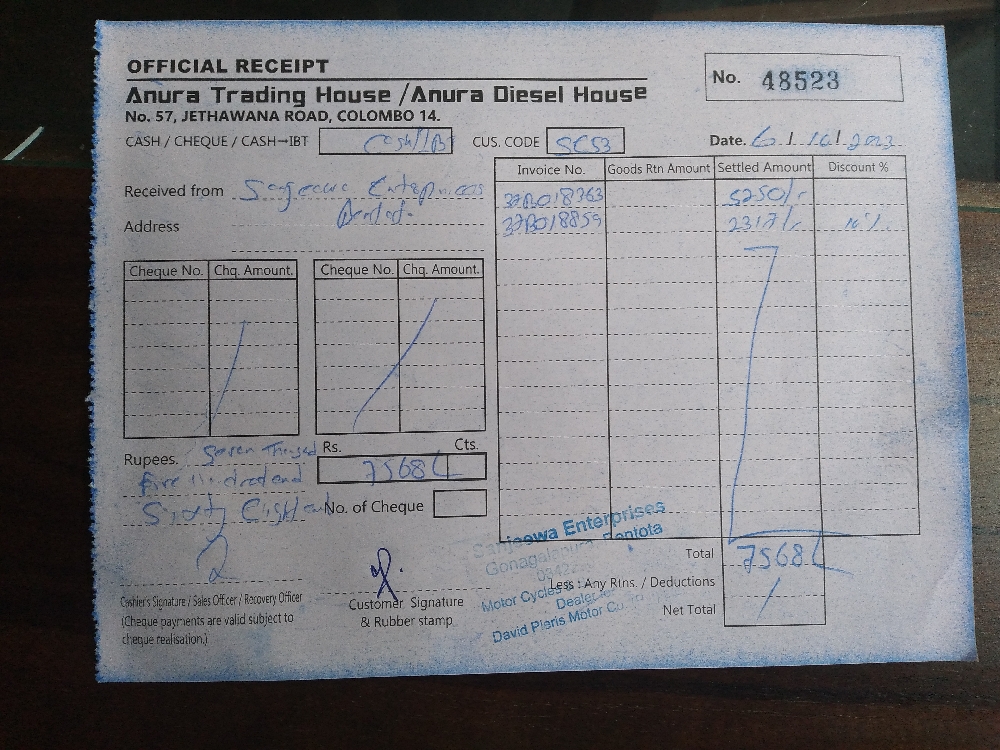 OFFICIAL RECEIPT
Anura Trading House /Anura Diesel House
No. 57, JETHAWANA ROAD, COLOMBO 14.
No. 48523
CASH / CHEQUE / CASH→IBT Cash/IB CUS. CODE SC53 Date. 6/10/2023
Received from Sanjeewa Enterprises
Bentota.
Address
Invoice No. Goods Rtn Amount Settled Amount Discount %
32B018363 5250/-
32B018859 2317/- 10%
Cheque No. Chq. Amount. Cheque No. Chq. Amount.
Rupees. Seven Thousand
Five Hundred and
Sixty Eight
Rs. Cts.
7568
No. of Cheque
Sanjeewa Enterprises
Gonagalapura, Bentota
Motor Cycles
Dealer
David Pieris Motor Co.
Total 7568
Less : Any Rtns. / Deductions
Net Total
Cashier's Signature / Sales Officer / Recovery Officer
(Cheque payments are valid subject to
cheque realisation.)
Customer Signature
& Rubber stamp